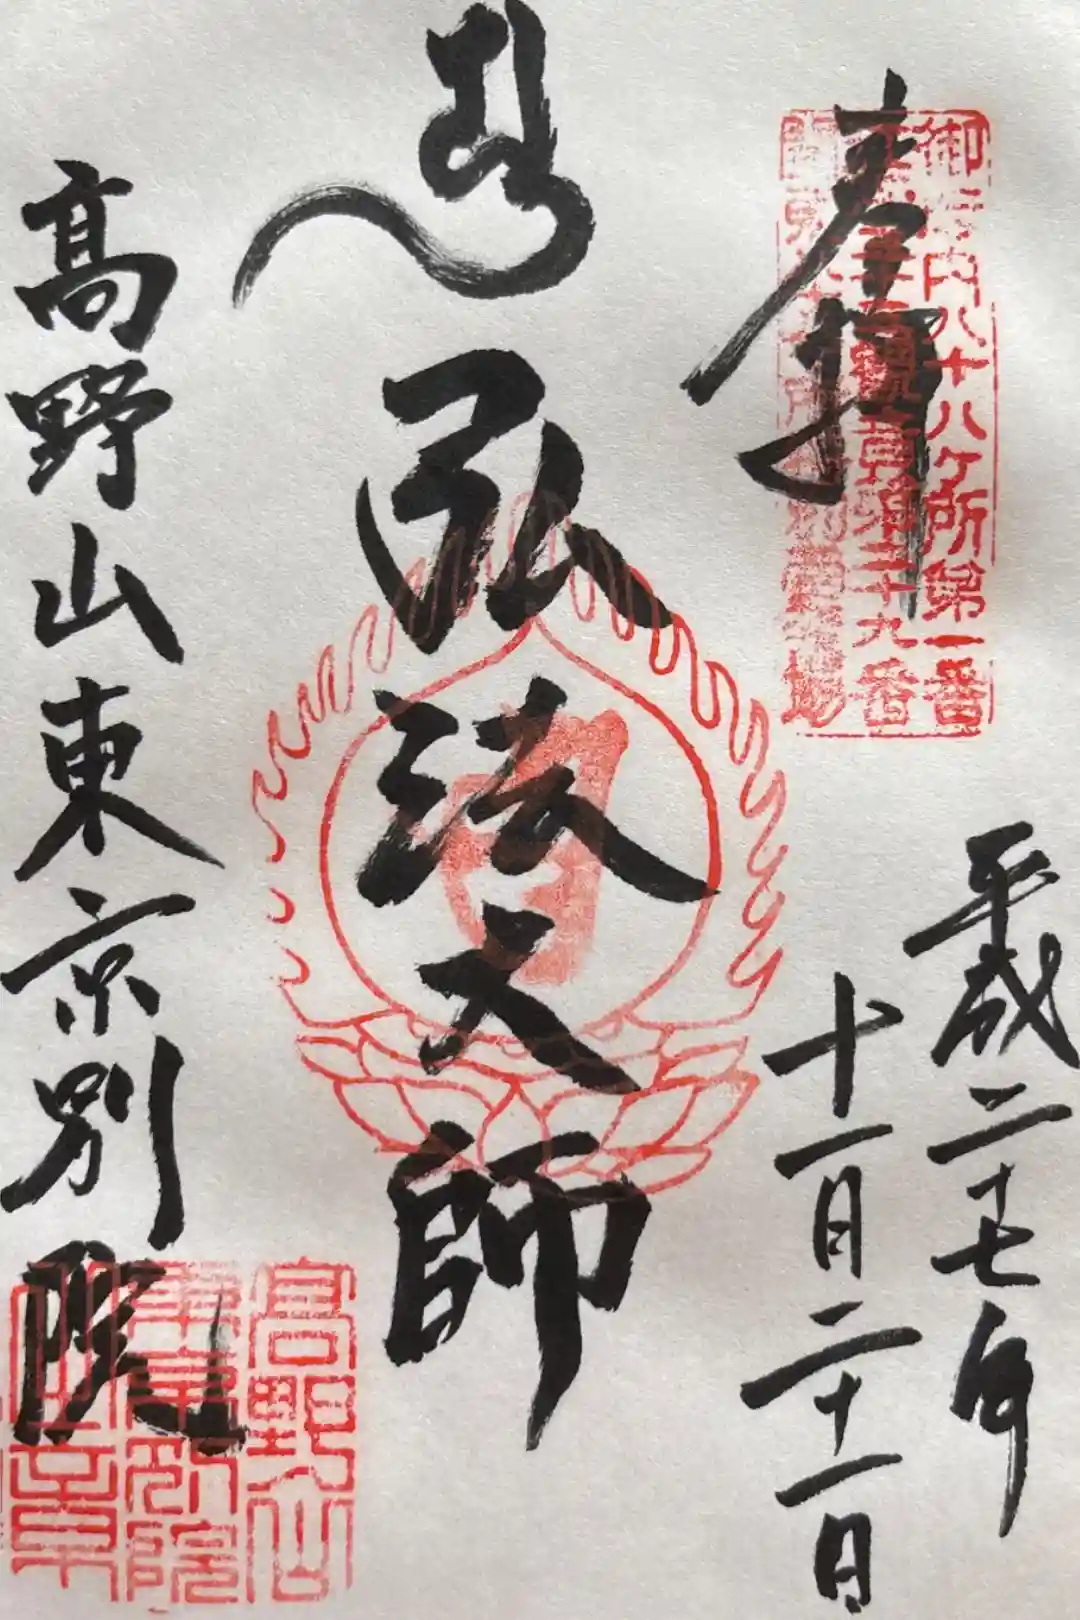 奉拝
御府内八十八ヶ所第一番
平成二十七年
十一月二十一日
弘法大師
高野山東京別院
高野山
東京別院